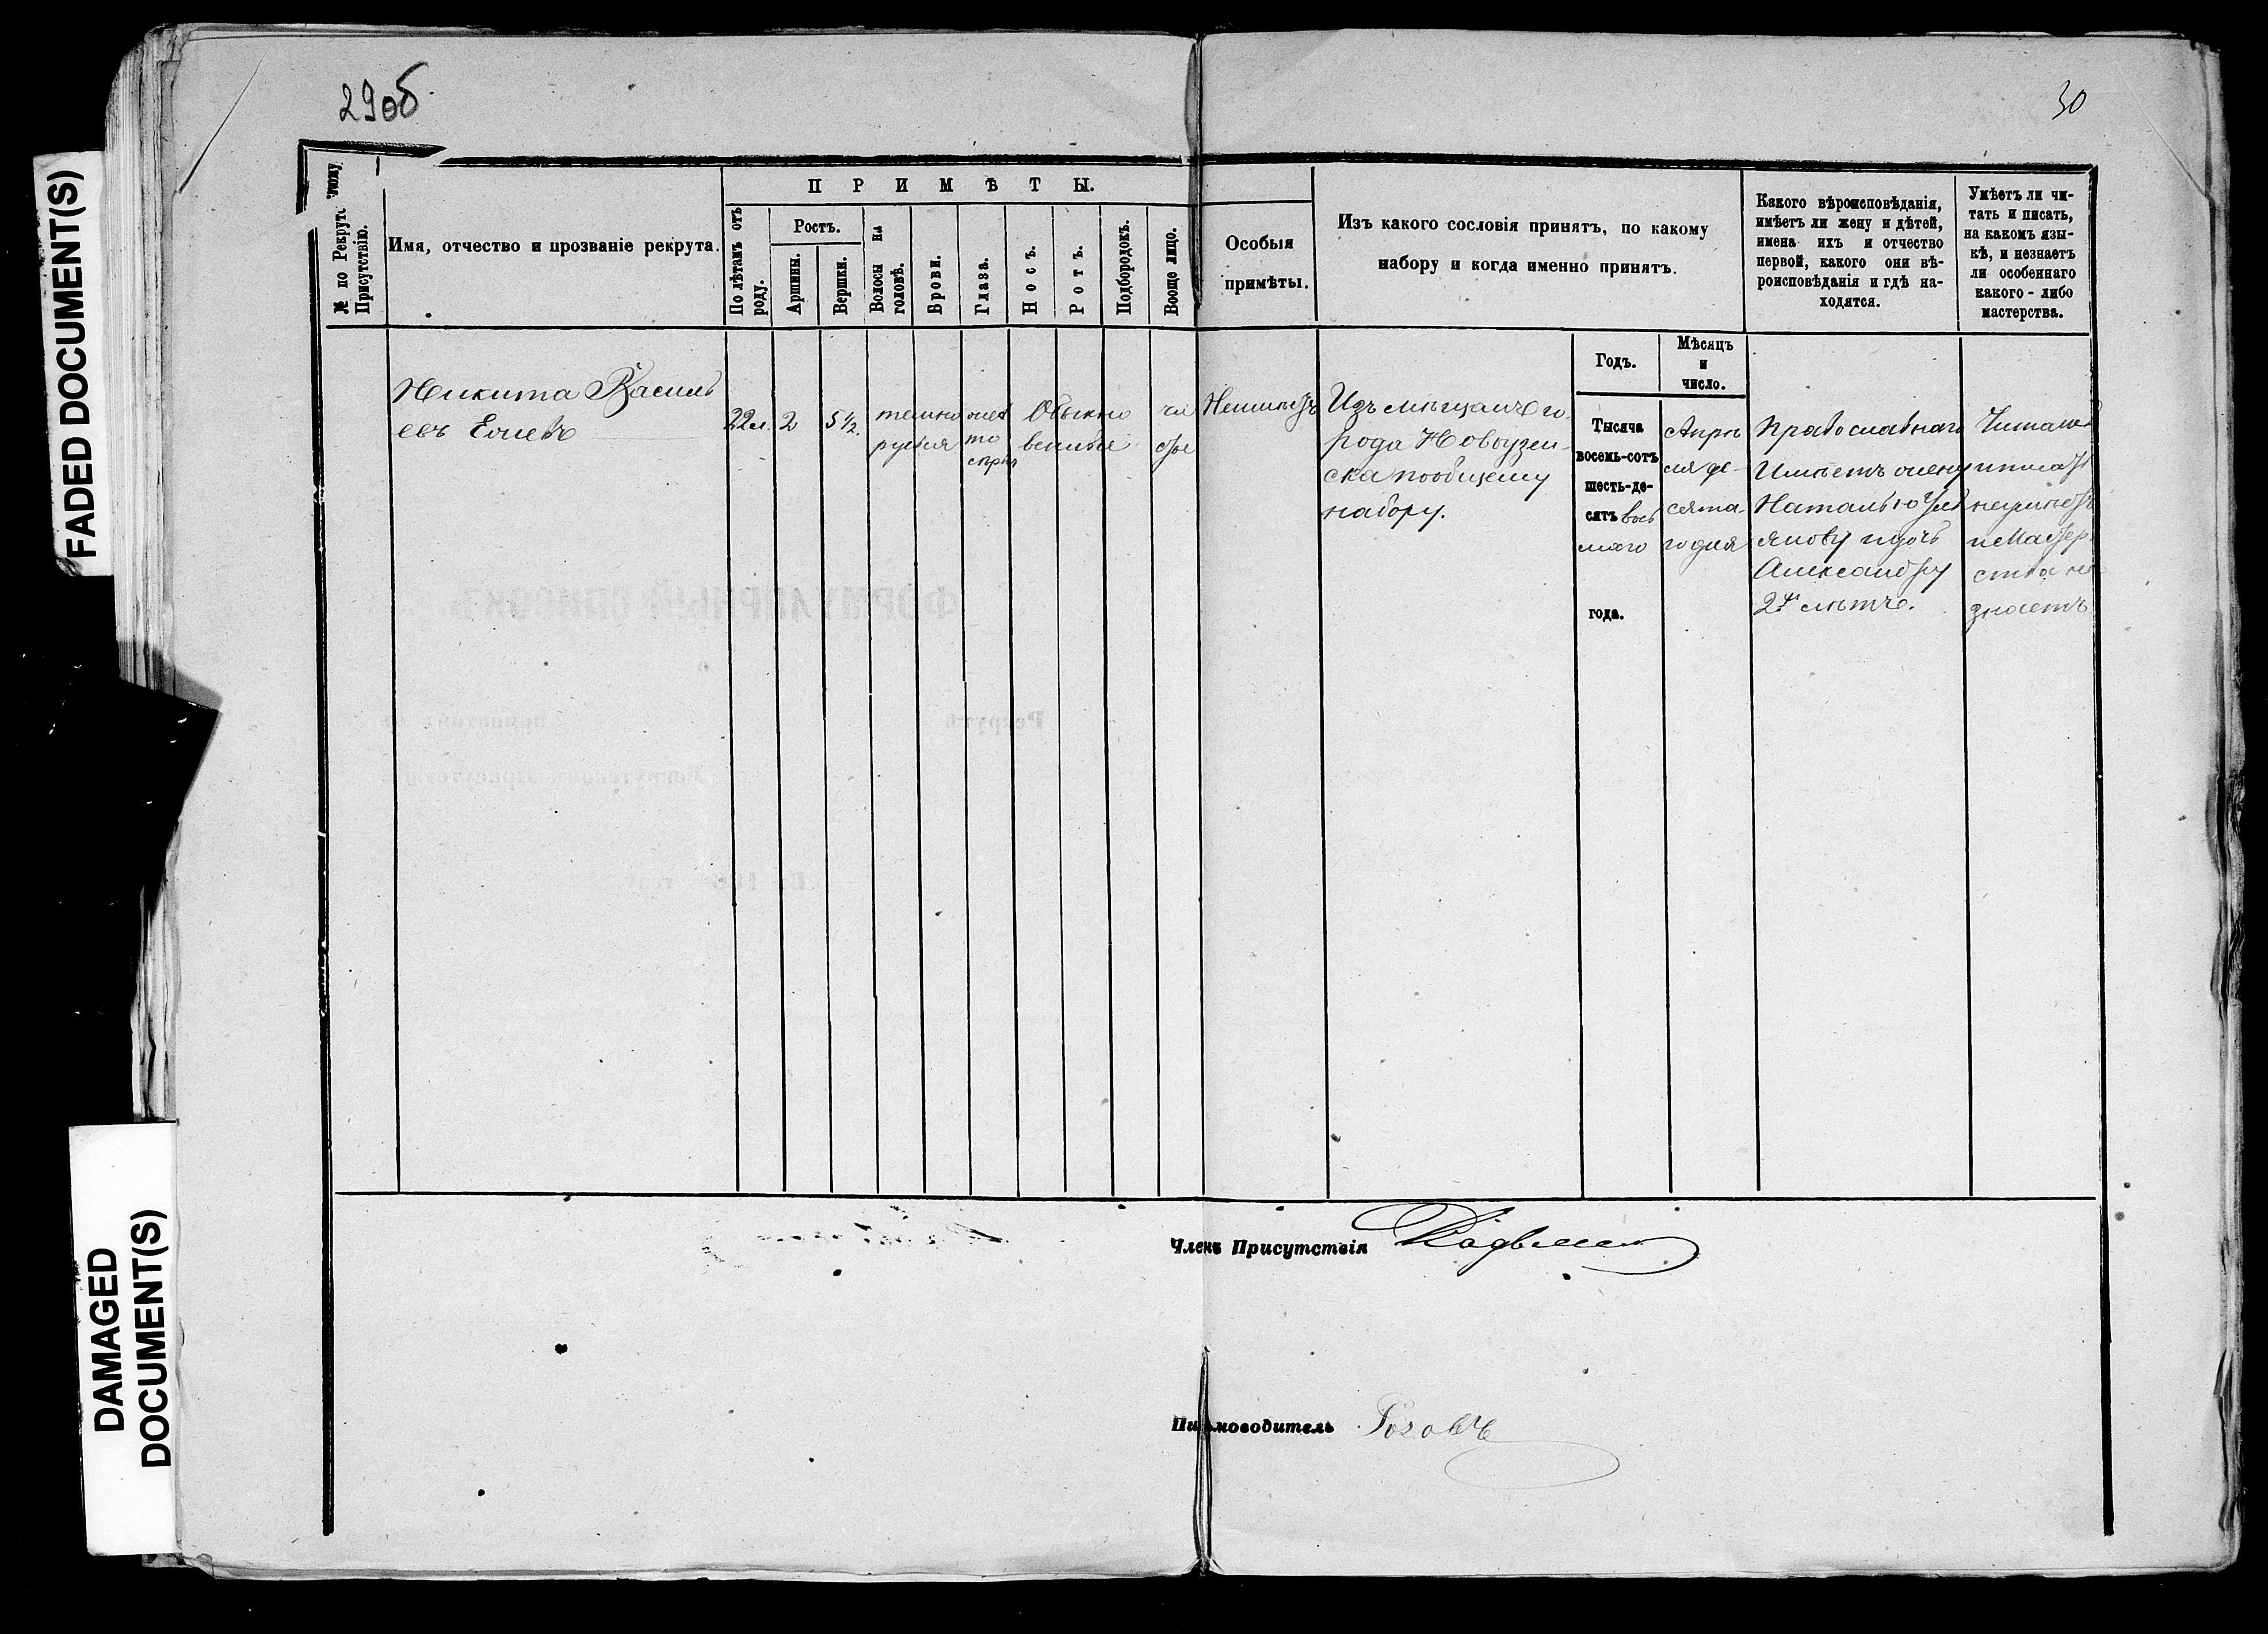 FADED DOCUMENT(S)
DAMAGED
DOCUMENT(S)
29об
30
№ по Рекрутскому
Присутствію.
Имя, отчество и прозваніе рекрута.
ПРИМѢТЫ.
По лѣтамъ отъ
роду.
Ростъ.
Аршины.
Вершки.
Волосы на
головѣ.
Брови.
Глаза.
Носъ.
Ротъ.
Подбородокъ.
Вооще лицо.
Особыя
примѣты.
Изъ какого сословія принятъ, по какому
набору и когда именно принятъ.
Какого вѣроисповѣданія,
имѣетъ ли жену и дѣтей,
имена ихъ и отчество
первой, какого они вѣ-
роисповѣданія и гдѣ на-
ходятся.
Умѣетъ ли чи-
тать и писать,
на какомъ язы-
кѣ, и незнаетъ
ли особеннаго
какого-либо
мастерства.
Годъ.
Мѣсяцъ
и
число.
Никита Василь
евъ
22 л.
2
5 1/2.
темно
русыя
Обыкно
венные
чи
стое
Неимѣетъ
Изъ мѣщанъ го-
рода Новоузен-
ска пообщему
набору.
Тысяча
восемь-сотъ
шесть-де-
сятъ вось
маго
года.
Апрѣ
ля де-
сята-
го дня
Православнаго
Имѣетъ жену
Наталью Уль
янову и дочь
Александру
2хъ лѣтъ.
Читать
иписать
неумѣетъ
и Мастер
ства не
знаетъ
Членъ Присутствія
Письмоводитель Роговъ
ФОРМУЛЯРНЫЙ СПИСОКЪ